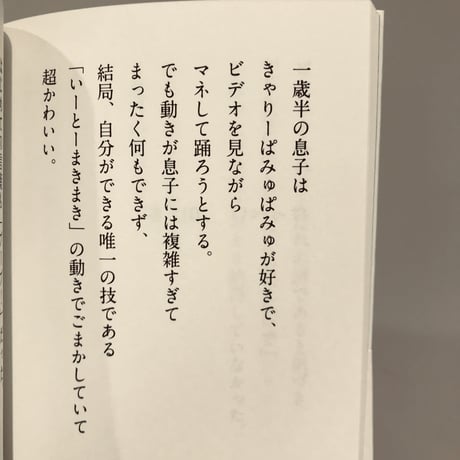 一歳半の息子は
きゃりーぱみゅぱみゅが好きで、
ビデオを見ながら
マネして踊ろうとする。
でも動きが息子には複雑すぎて
まったく何もできず、
結局、自分ができる唯一の技である
「いーとーまきまき」の動きでごまかしていて
超かわいい。